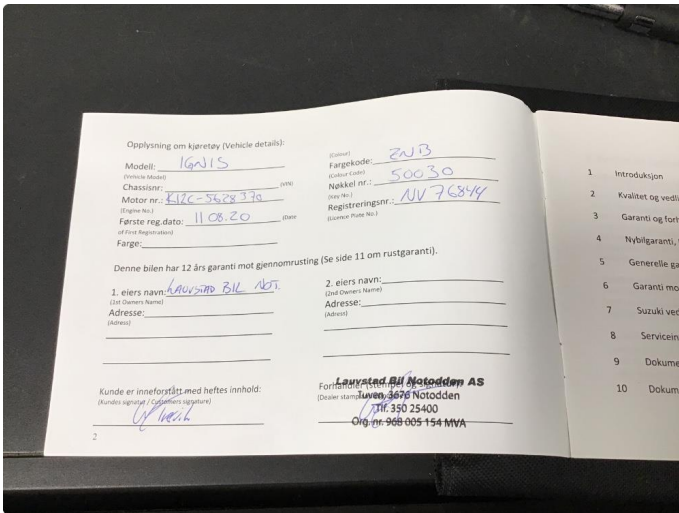 Opplysning om kjøretøy (Vehicle details):
Modell: IGNIS
(Vehicle Model)
Chassisnr: (VIN)
Motor nr.: K12C-5628370
(Engine No.)
Første reg.dato: 11 08.20 (Date
of First Registration)
Farge:
(Colour)
Fargekode: ZNB
(Colour Code)
Nøkkel nr.: 50030
(Key No.)
Registreringsnr.: NV 76844
(Licence Plate No.)
Denne bilen har 12 års garanti mot gjennomrusting (Se side 11 om rustgaranti).
1. eiers navn: LAUVSTAD BIL NOT.
(1st Owners Name)
Adresse:
(Adress)
2. eiers navn:
(2nd Owners Name)
Adresse:
(Adress)
Kunde er inneforstått med heftes innhold:
(Kundes signatur / Customers signature)
Forhandler (stempel og
(Dealer stamp
Lauvstad Bil Notodden AS
Tuven, 3676 Notodden
Tlf. 350 25400
Org. nr. 968 005 154 MVA
2
1 Introduksjon
2 Kvalitet og vedli
3 Garanti og forh
4 Nybilgaranti,
5 Generelle ga
6 Garanti mo
7 Suzuki ved
8 Servicein
9 Dokume
10 Dokum